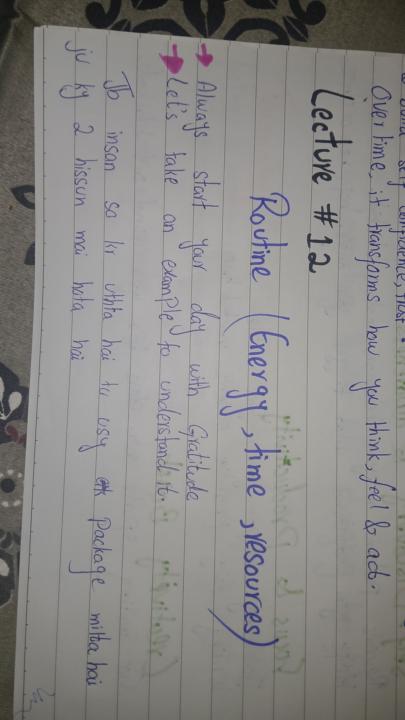 build self confidence, trust
Overtime, it transforms how you think, feel & act.
Lecture #12
Routine (Energy, time, resources)
→ Always start your day with Gratitude
→ Let's take an example to understand it.
Jb insan so kr uthta hai tu usy ek package milta hai
ju ky 2 hissun mai hota hai